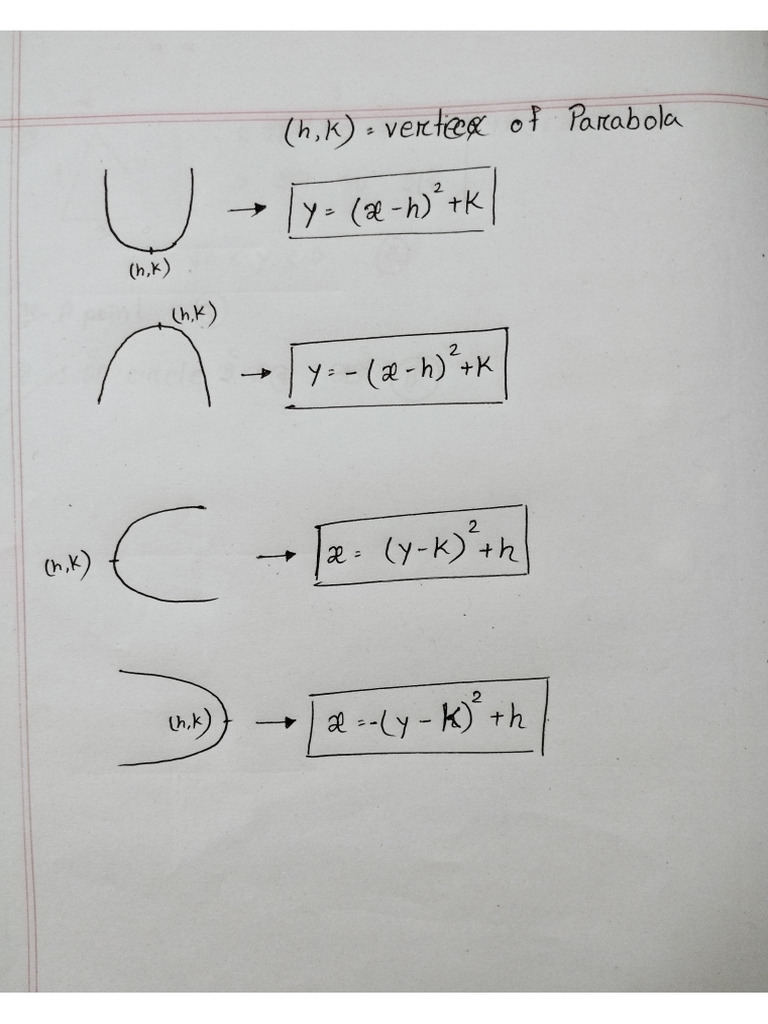 (h,k) = vertex of Parabola
y = (x-h)² + k
(h,k)
(h,k)
y = -(x-h)² + k
(h,k)
x = (y-k)² + h
(h,k)
x = -(y-k)² + h